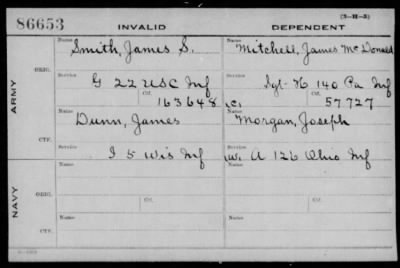 86653 INVALID DEPENDENT (3-H-3)
Name Smith, James S. Name Mitchell, James McDonald
ARMY
ORIG. Service G 22 USC Inf Service Sgt H 140 Pa Inf
Ctf. 163648 Ctf. 57727
CTF. Name Dunn, James Name Morgan, Joseph
Service I 5 Wis Inf Service A 126 Ohio Inf
NAVY
ORIG. Name Name
Service Ctf. Service Ctf.
CTF. Name Name
Service Service